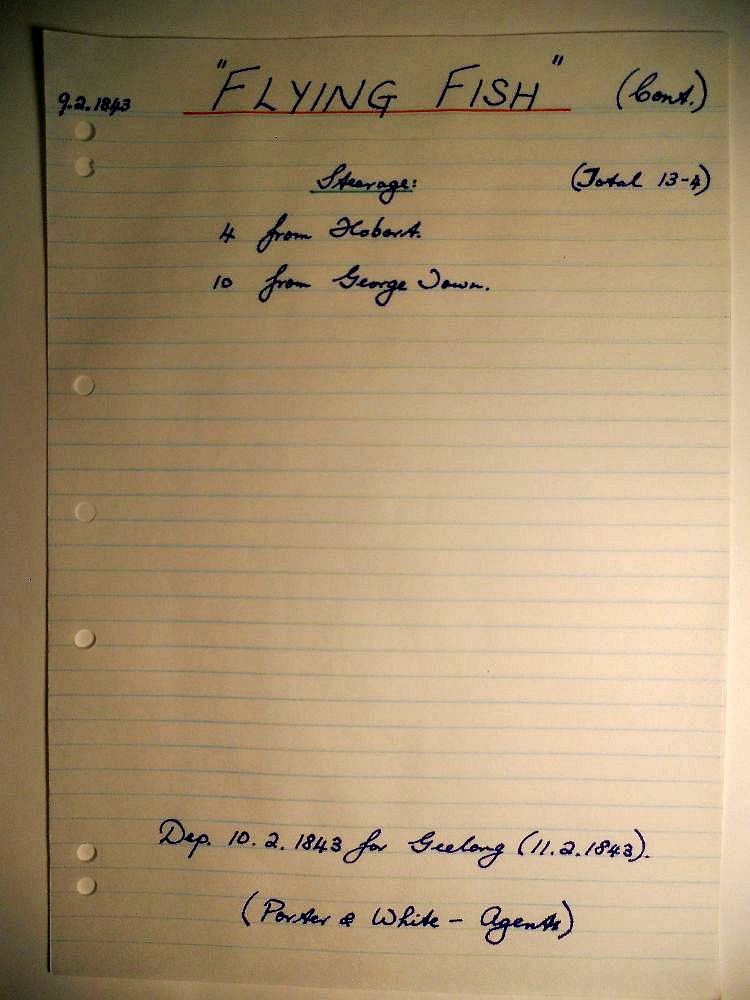 9.2.1843 "FLYING FISH" (Cont.)
Steerage: (Total 13-4)
4 from Hobart.
10 from George Town.
Dep. 10.2.1843 for Geelong (11.2.1843).
(Porter & White - Agents)